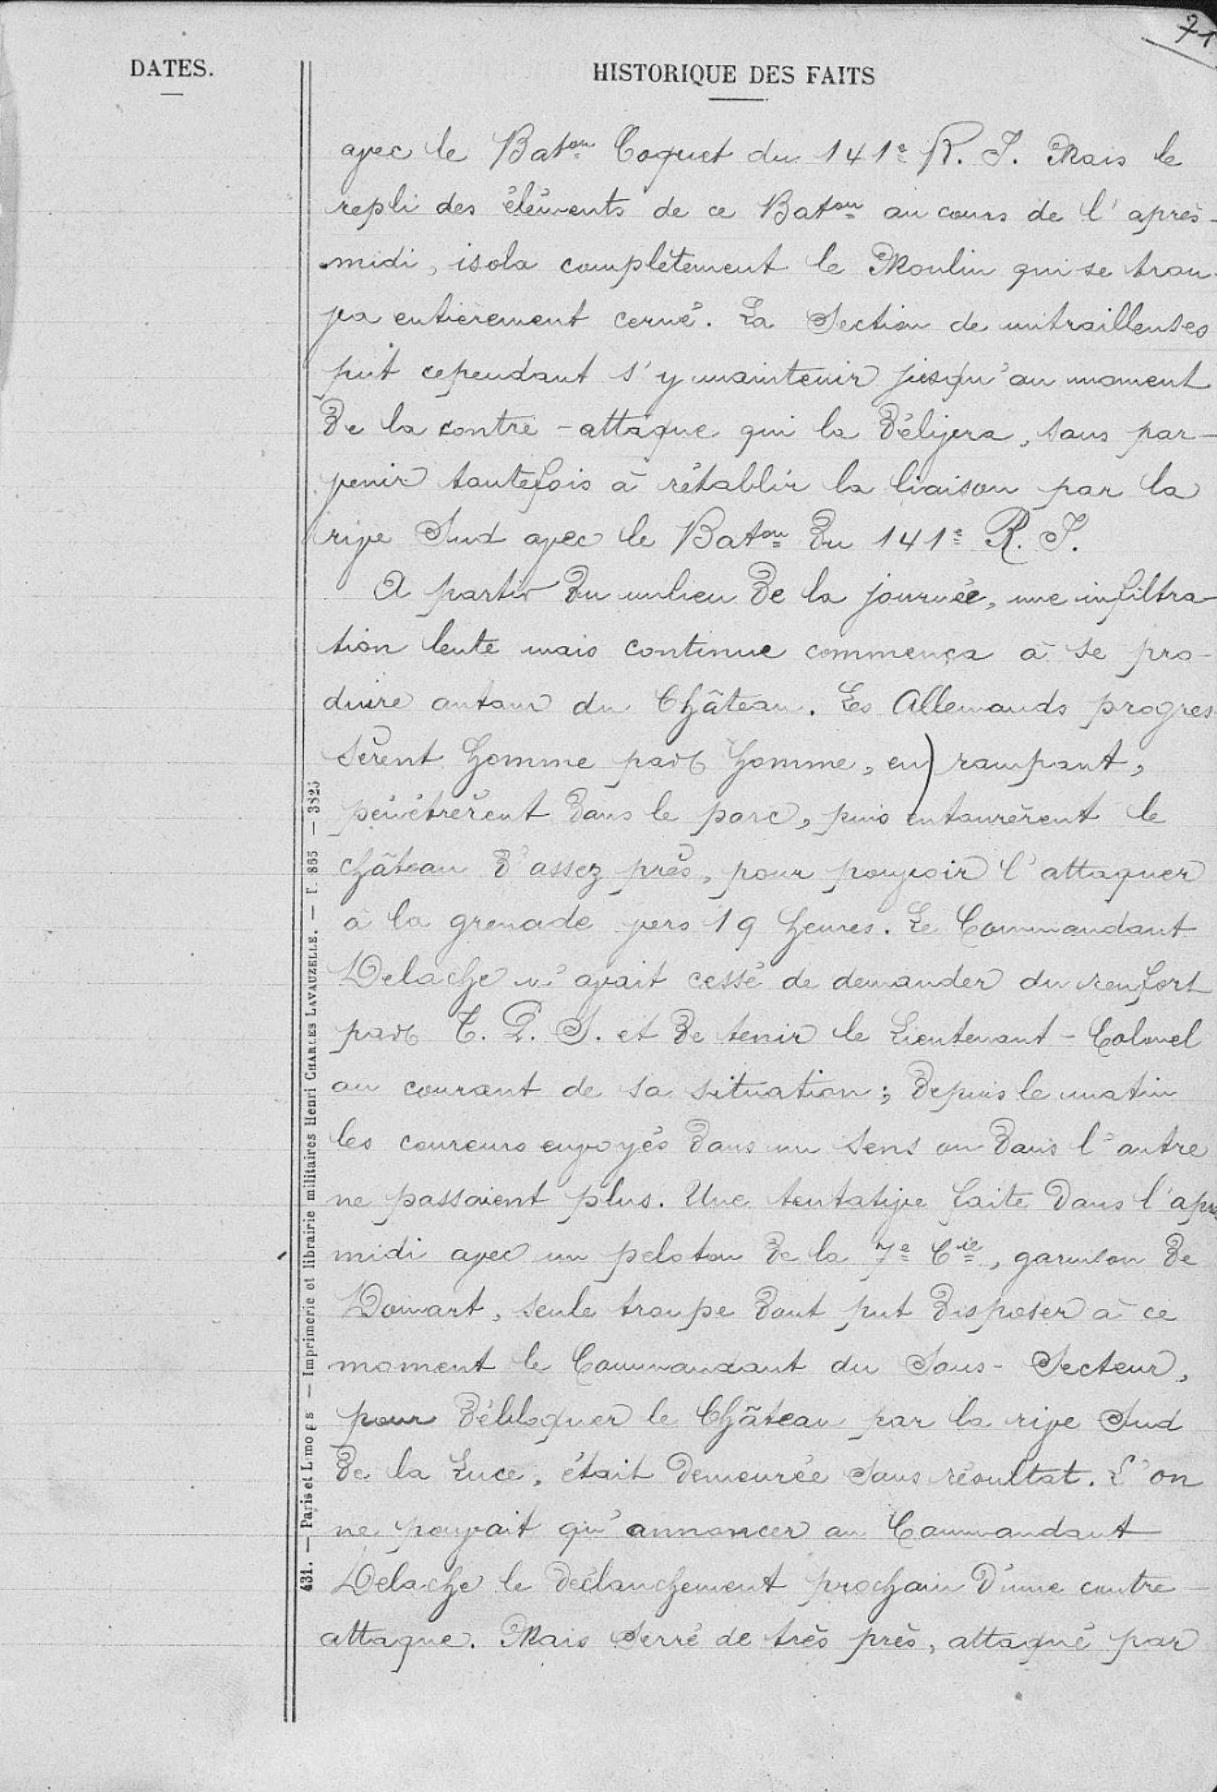 71
DATES.
HISTORIQUE DES FAITS
avec le Baton Coquet du 141e R. I. Mais le
repli des éléments de ce Baton au cours de l'après-
midi, isola complètement le Moulin qui se trou-
va entièrement cerné. La Section de mitrailleuses
put cependant s'y maintenir jusqu'au moment
de la contre-attaque qui la délivra, sans par-
venir toutefois à rétablir la liaison par la
rive Sud avec le Baton du 141e R. I.
A partir du milieu de la journée, une infiltra-
tion lente mais continue commença à se pro-
duire autour du Château. Les Allemands progres-
sèrent homme par homme, en rampant,
pénétrèrent dans le parc, puis entourèrent le
château d'assez près, pour pouvoir l'attaquer
à la grenade vers 19 heures. Le Commandant
Delache n'avait cessé de demander du renfort
par T. P. S. et de tenir le Lieutenant-Colonel
au courant de sa situation; depuis le matin
les coureurs envoyés dans un sens ou dans l'autre
ne passaient plus. Une tentative faite dans l'après
midi avec un peloton de la 7e Cie, garnison de
Domart, seule troupe dont put disposer à ce
moment le Commandant du Sous-Secteur,
pour débloquer le Château par la rive Sud
de la Luce, était demeurée sans résultat. L'on
ne pouvait qu'annoncer au Commandant
Delache le déclanchement prochain d'une contre-
attaque. Mais serré de très près, attaqué par
431. — Paris et Limoges — Imprimerie et librairie militaires Henri CHARLES LAVAUZELLE. — T. 865 — 3823